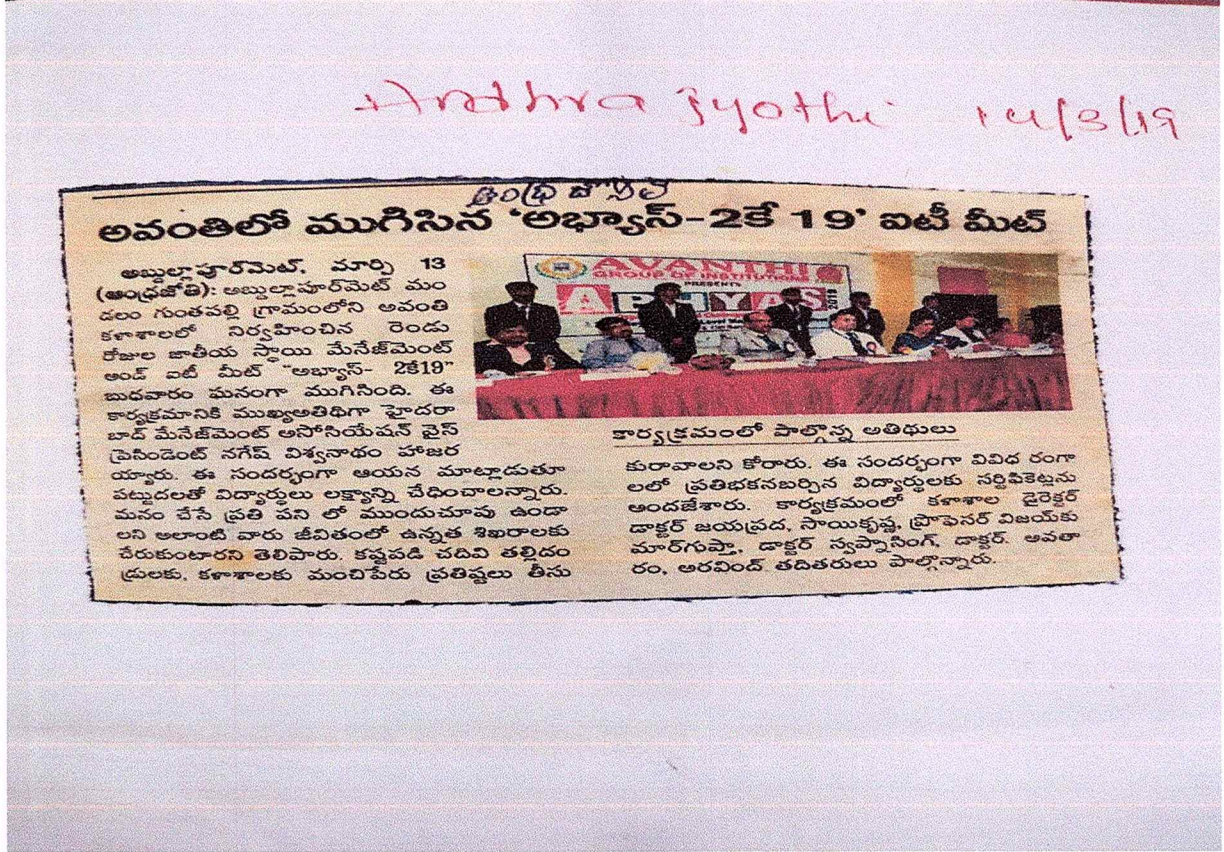 Andhra Jyothi 14/3/19
ఆంధ్ర జ్యోతి
అవంతిలో ముగిసిన 'అభ్యాస్-2కే 19' ఐటీ మీట్
అబ్దుల్లాపూర్‌మెట్, మార్చి 13
(ఆంధ్రజ్యోతి): అబ్దుల్లాపూర్‌మెట్ మం
డలం గుంతపల్లి గ్రామంలోని అవంతి
కళాశాలలో నిర్వహించిన రెండు
రోజుల జాతీయ స్థాయి మేనేజ్‌మెంట్
అండ్ ఐటీ మీట్ "అభ్యాస్- 2కే19"
బుధవారం ఘనంగా ముగిసింది. ఈ
కార్యక్రమానికి ముఖ్యఅతిథిగా హైదరా
బాద్ మేనేజ్‌మెంట్ అసోసియేషన్ వైస్
ప్రెసిడెంట్ నగేష్ విశ్వనాథం హాజర
య్యారు. ఈ సందర్భంగా ఆయన మాట్లాడుతూ
పట్టుదలతో విద్యార్థులు లక్ష్యాన్ని చేధించాలన్నారు.
మనం చేసే ప్రతి పని లో ముందుచూపు ఉండా
లని అలాంటి వారు జీవితంలో ఉన్నత శిఖరాలకు
చేరుకుంటారని తెలిపారు. కష్టపడి చదివి తల్లిదం
డ్రులకు, కళాశాలకు మంచిపేరు ప్రతిష్టలు తీసు
AVANTHI
GROUP OF INSTITUTIONS
PRESENTS
2019
కార్యక్రమంలో పాల్గొన్న అతిథులు
కురావాలని కోరారు. ఈ సందర్భంగా వివిధ రంగా
లలో ప్రతిభకనబర్చిన విద్యార్థులకు సర్టిఫికెట్లను
అందజేశారు. కార్యక్రమంలో కళాశాల డైరెక్టర్
డాక్టర్ జయప్రద, సాయికృష్ణ, ప్రొఫెసర్ విజయ్‌కు
మార్‌గుప్తా, డాక్టర్ స్వప్నాసింగ్, డాక్టర్. అవతా
రం, అరవింద్ తదితరులు పాల్గొన్నారు.